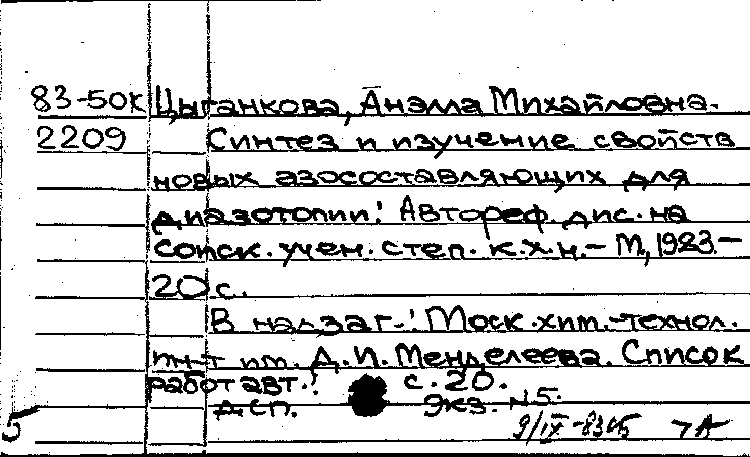 83-50К Цыганкова, Анэлла Михайловна.
2209 Синтез и изучение свойств
новых азосоставляющих для
диазотопии: Автореф. дис. на
соиск. учен. степ. к.х.н. - М, 1983. -
20 с.
В надзаг.: Моск. хим.-технол.
ин-т им. Д.И. Менделеева. Список
работ авт.: с. 20.
ДСП. Экз. №5.
5 9/IX-83